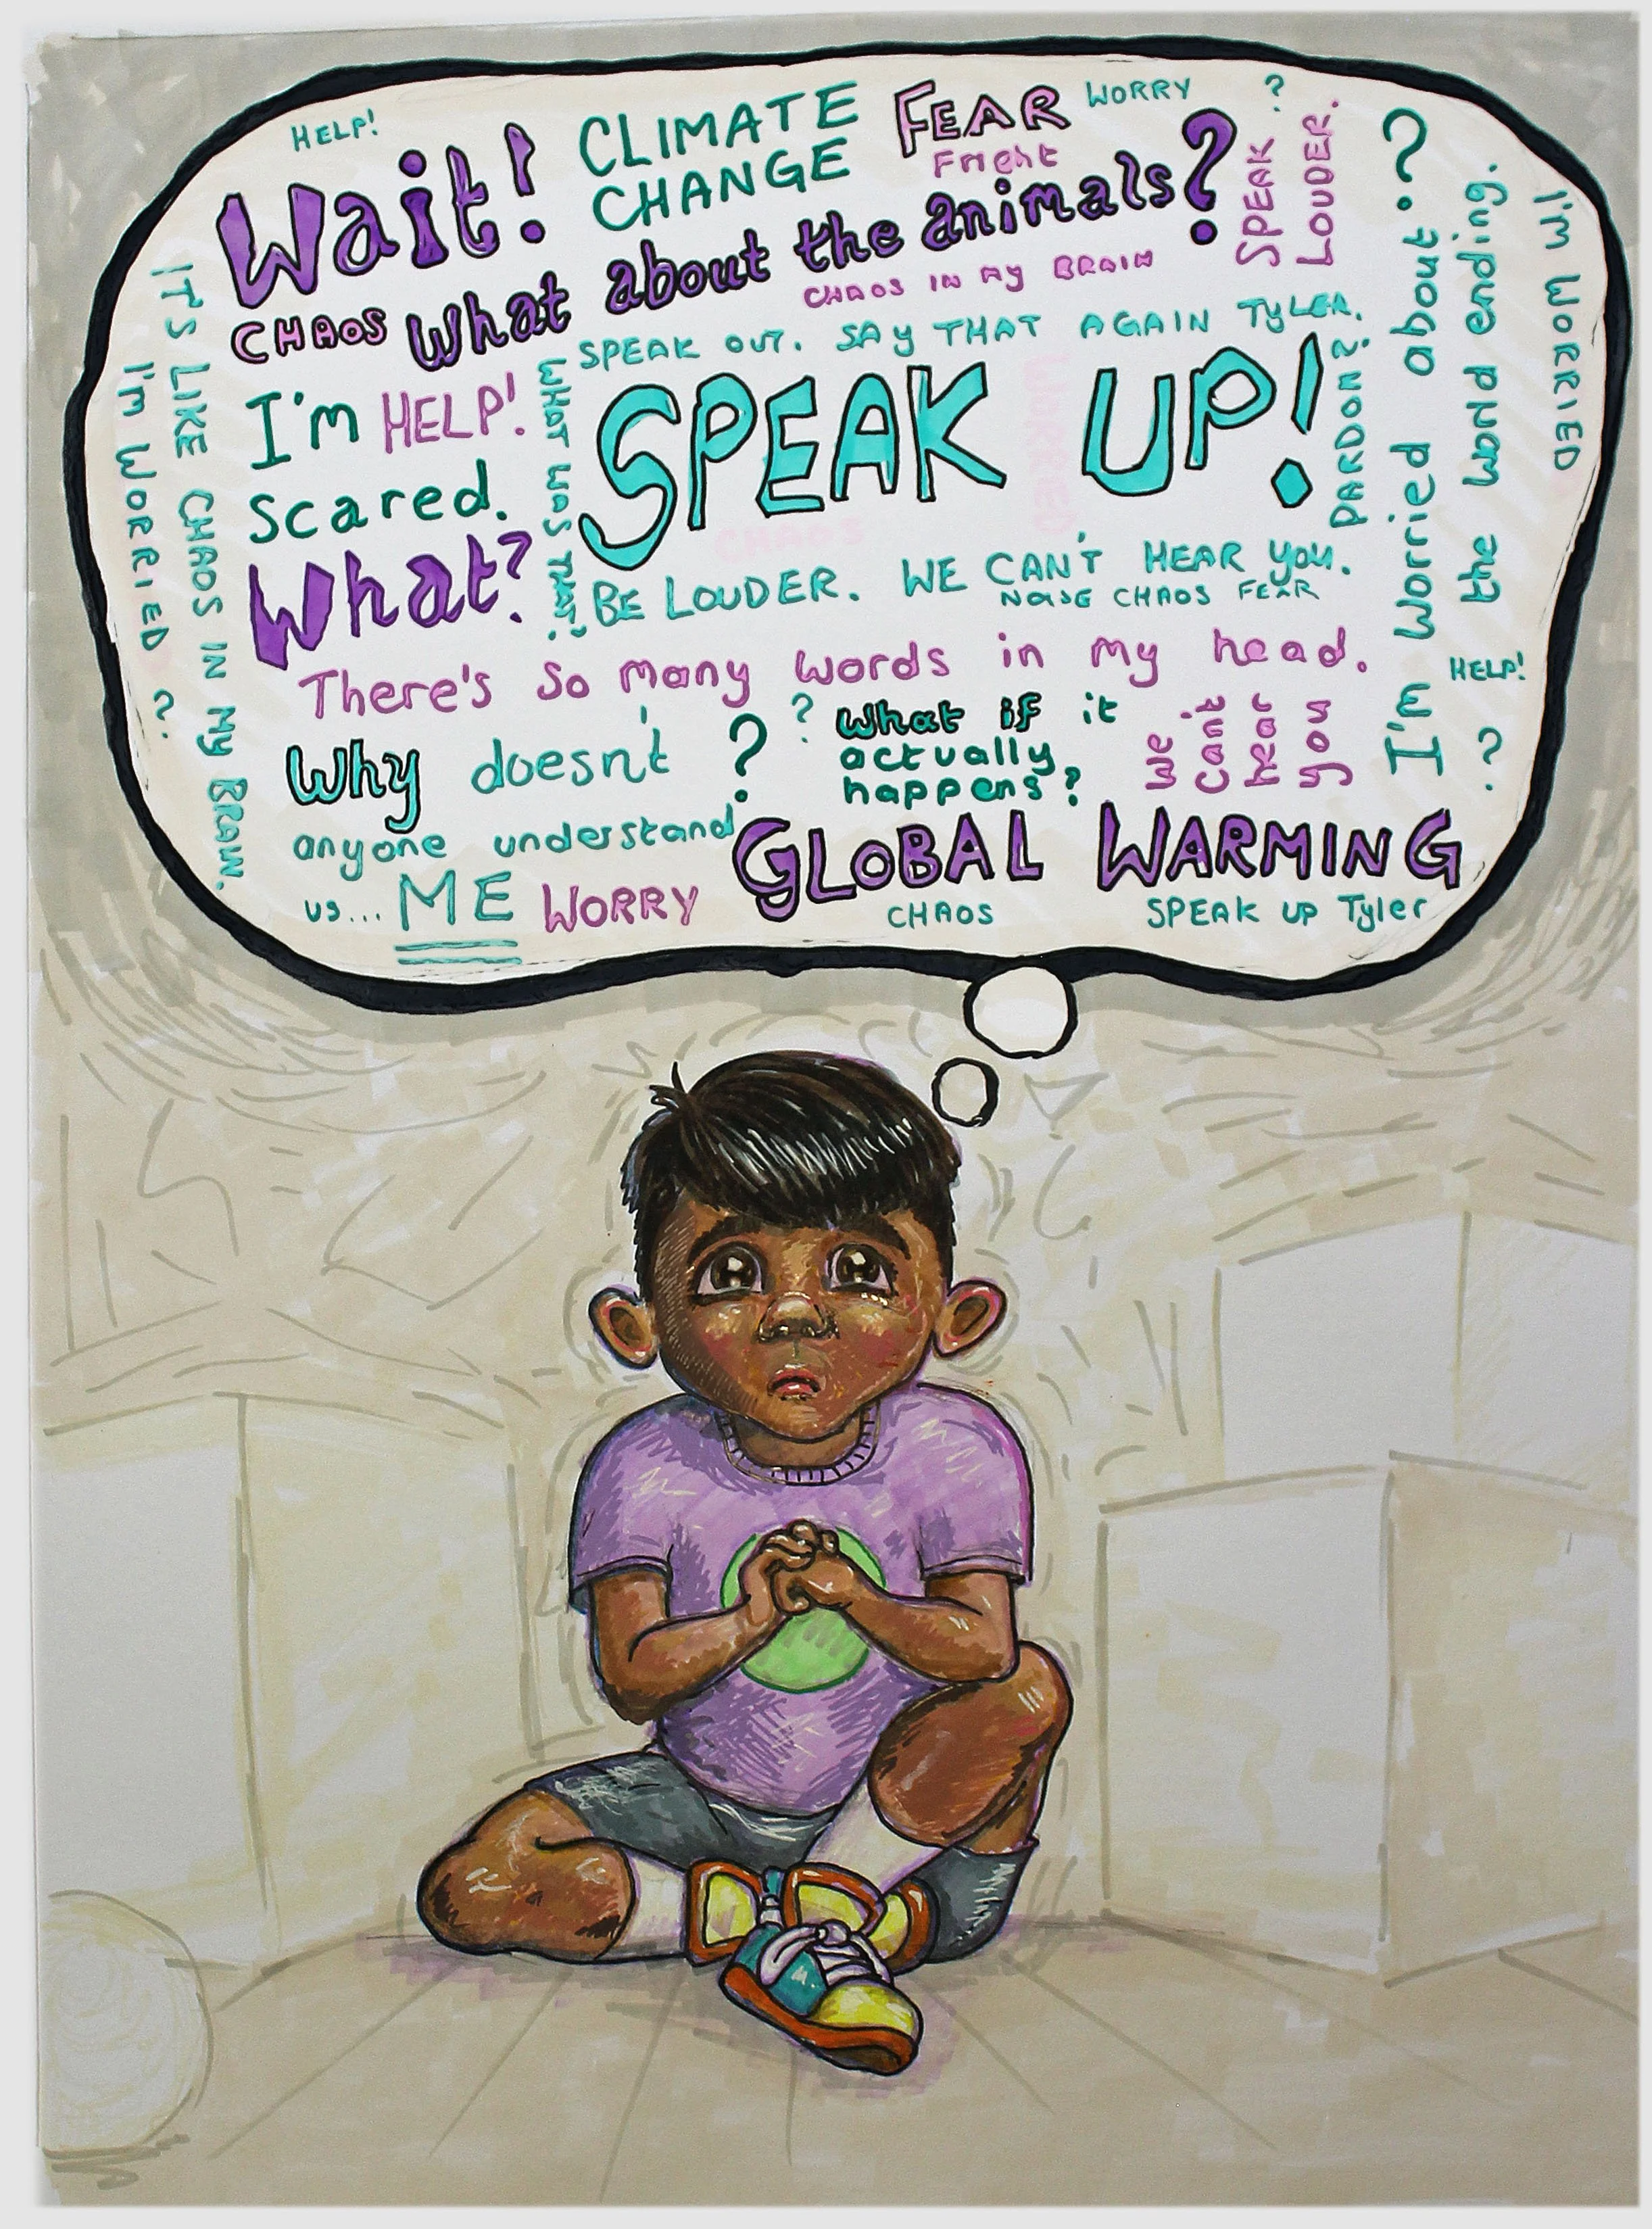 HELP!
Wait!
CLIMATE
CHANGE
FEAR
Fright
WORRY
?
SPEAK
LOUDER.
CHAOS
What about the animals?
CHAOS IN MY BRAIN
SPEAK OUT. SAY THAT AGAIN TYLER.
IT'S LIKE CHAOS IN MY BRAIN.
I'm WORRIED ?
I'm
HELP!
scared.
WHAT WAS THAT?
SPEAK UP!
PARDON?
I'm worried about ?
the world ending.
I'm WORRIED
CHAOS
WORRIED
What?
BE LOUDER. WE CAN'T HEAR YOU.
NOISE CHAOS FEAR
There's so many words in my head.
HELP!
?
Why doesn't ?
anyone understand
us... ME
?
What if it
actually
happens?
we
can't
hear
you
WORRY
GLOBAL WARMING
CHAOS
SPEAK UP Tyler